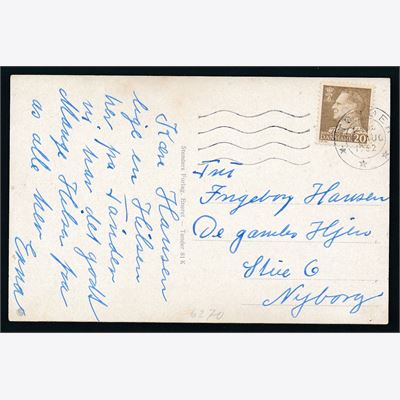 Kære Hansen
lige en Hilsen
her fra Tønder
vi har det godt
Mange Hilsner fra
os alle her
Enna
Stenders Forlag, Eneret — Tønder 81 K
DANMARK 20
Fru
Ingeborg Hansen
De gamles Hjem
Stue 6
Nyborg
6270